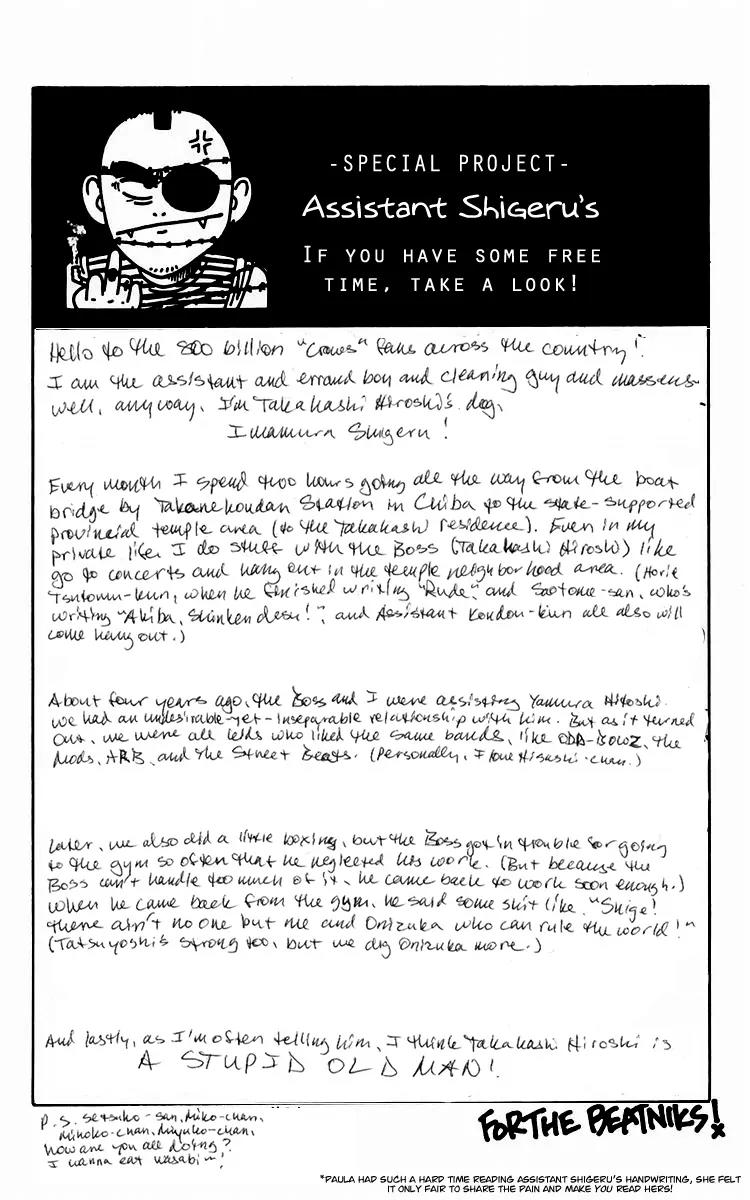 -SPECIAL PROJECT-
Assistant Shigeru's
IF YOU HAVE SOME FREE
TIME, TAKE A LOOK!
Hello to the 800 billion "Crows" fans across the country!
I am the assistant and errand boy and cleaning guy and masseus-
well, anyway, I'm Takahashi Hiroshi's dog,
Imamura Shigeru!
Every month I spend two hours going all the way from the boat
bridge by Takanekoudan Station in Chiba to the state-supported
provincial temple area (to the Takahashi residence). Even in my
private life I do stuff with the Boss (Takahashi Hiroshi) like
go to concerts and hang out in the temple neighborhood area. (Horie
Tsutomu-kun, when he finished writing "Rude" and Saotome-san, who's
writing "Akiba, Shinken desu!", and Assistant Kondou-kun all also will
come hang out.)
About four years ago, the Boss and I were assisting Yamura Hitoshi.
We had an undesirable-yet-inseparable relationship with him. But as it turned
out, we were all kids who liked the same bands, like ODA-BOWZ, the
Mods, ARB, and the Street Beats. (Personally, I love Hisashi-chan.)
Later, we also did a little boxing, but the Boss got in trouble for going
to the gym so often that he neglected his work. (But because the
Boss can't handle too much of it, he came back to work soon enough.)
When he came back from the gym, he said some shit like, "Shige!
there ain't no one but me and Onizuka who can rule the world!"
(Tatsuyoshi's strong too, but we dig Onizuka more.)
And lastly, as I'm often telling him, I think Takahashi Hiroshi is
A STUPID OLD MAN!
P.S. Setsuko-san, Miko-chan,
Mihoko-chan, Miyuko-chan,
how are you all doing?
I wanna eat wasabi~!
FOR THE BEATNIKS!
*PAULA HAD SUCH A HARD TIME READING ASSISTANT SHIGERU'S HANDWRITING, SHE FELT
IT ONLY FAIR TO SHARE THE PAIN AND MAKE YOU READ HERS!